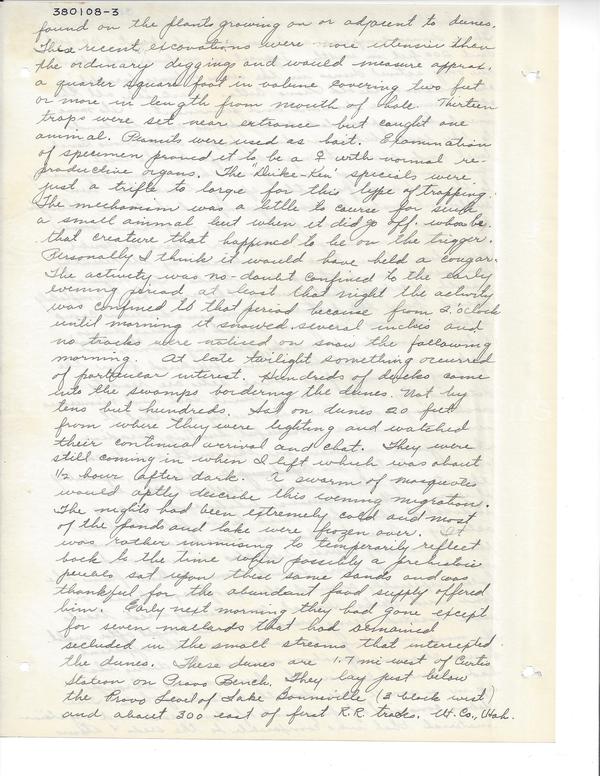 380108-3
found on the plants growing on or adjacent to dunes.
These recent excavations were more intensive than
the ordinary diggings and would measure approx.
a quarter square foot in volume covering two feet
or more in length from mouth of hole. Thirteen
traps were set near entrance but caught one
animal. Peanuts were used as bait. Examination
of specimen proved it to be a ♀ with normal re-
productive organs. The "Duke-Ken" specials were
just a trifle to large for this type of trapping.
The mechanism was a little to course for such
a small animal but when it did go off. whoa be
that creature that happened to be on the trigger.
Personally I think it would have held a cougar.
The activity was no-doubt confined to the early
evening period at least that night the activity
was confined to that period because from 2. o'clock
until morning it snowed several inches and
no tracks were noticed on snow the following
morning. At late twilight something occurred
of particular interest. Hundreds of ducks came
into the swamps bordering the dunes. Not by
tens but hundreds. Sat on dunes 20 feet
from where they were lighting and watched
their continual arrival and chat. They were
still coming in when I left which was about
1/2 hour after dark. A swarm of mosquitoes
would aptly describe this evening migration.
The nights had been extremely cold and most
of the ponds and lake were frozen over. It
was rather to temporarily reflect
back to the time when possibly a prehistoric
sat upon these same sands and was
thankful for the abundant food supply offered
him. Early next morning they had gone except
for seven mallards that had remained
secluded in the small streams that intercepted
the dunes. These dunes are 1.7 mi west of Curtis
Station on Provo Bench. They lay just below
the Provo Level of Lake Bonneville (2 block west)
and about 300 east of first R.R. tracks. Ut. Co., Utah.